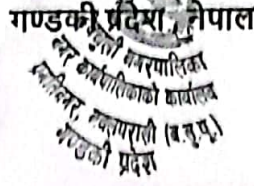 गण्डकी प्रदेश, नेपाल
नगरपालिका
नगर कार्यपालिकाको कार्यालय
नवलपरासी (ब.सु.पू.)
गण्डकी प्रदेश